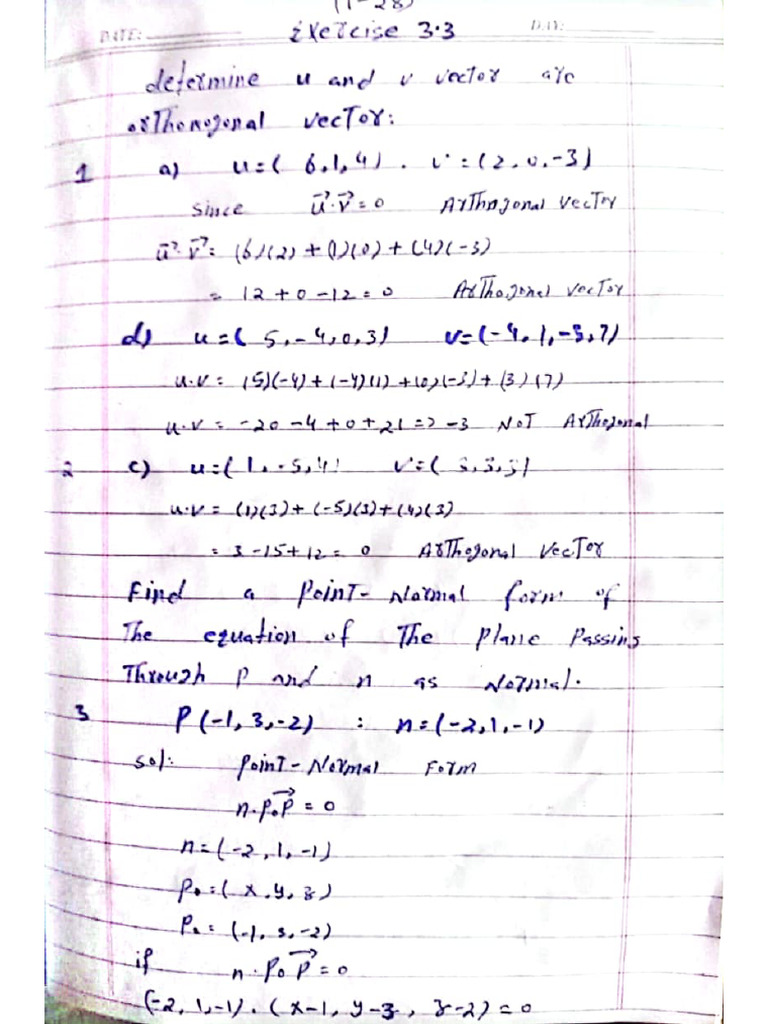 (1-28)
DATE: Exercise 3.3 DAY:
determine u and v vector are
orthonogonal vector:
1 a) u=( 6,1,4) . v=(2,0,-3)
since u⃗.v⃗=0 Arthogonal vector
u⃗.v⃗= (6)(2) + (1)(0) + (4)(-3)
= 12+0-12=0 Arthogonal vector
d) u=( 5,-4,0,3) v=(-4,1,-3,7)
u.v= (5)(-4)+(-4)(1)+(0)(-3)+(3)(7)
u.v = -20-4+0+21=>-3 NOT Arthogonal
2 c) u=(1,-5,4) v=(3,3,3)
u.v= (1)(3)+(-5)(3)+(4)(3)
= 3-15+12= 0 Arthogonal vector
Find a Point-Normal form of
The equation of The Plane Passing
Through P and n as Normal.
3 P(-1,3,-2) : n=(-2,1,-1)
sol: Point-Normal Form
n.P₀P⃗=0
n=(-2,1,-1)
P₀=( x,y,z)
P₀= (-1,3,-2)
if n.P₀P⃗=0
(-2,1,-1).(x-1, y-3, z-2)=0